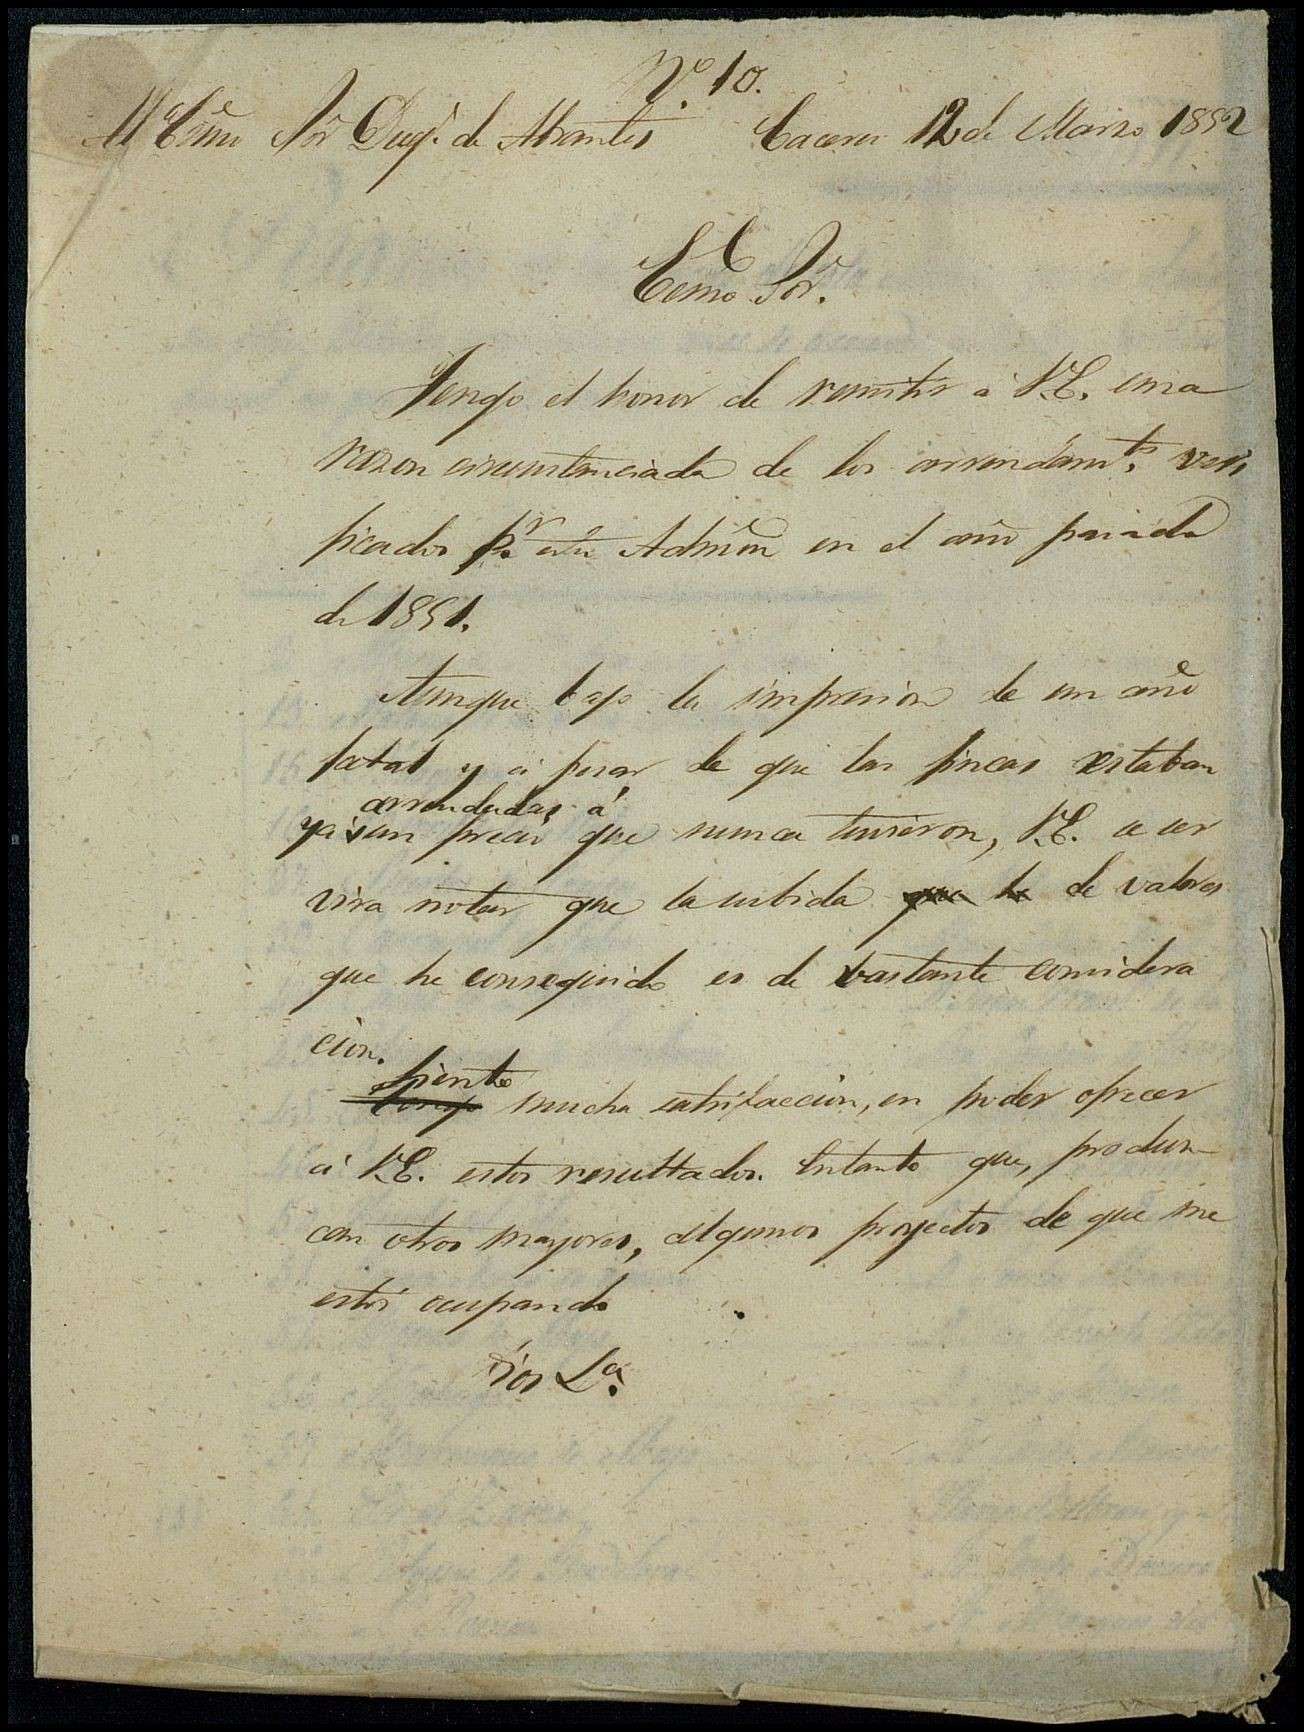 Nº 10.
Al Excmo Sor Duqe. de Abrantes Caceres 12 de Marzo 1852
Excmo Sor.
Tengo el honor de remitir á V.E. una
razon circunstanciada de los arrendamtos. veri
ficados pr. esta Admon en el año pasado
de 1851.
Aunque bajo la impresion de un año
fatal y á pesar de que las fincas estaban
arrendadas á
ya un precio que nunca tuvieron, V.E. se ser
vira notar que la subida que he de valores
que he conseguido es de bastante considera
cion.
Siento
Tengo mucha satisfaccion, en poder ofrecer
á V.E. estos resultados. Entanto que, produz
can otros mayores, algunos proyectos de que me
estoi ocupando
Dios La.